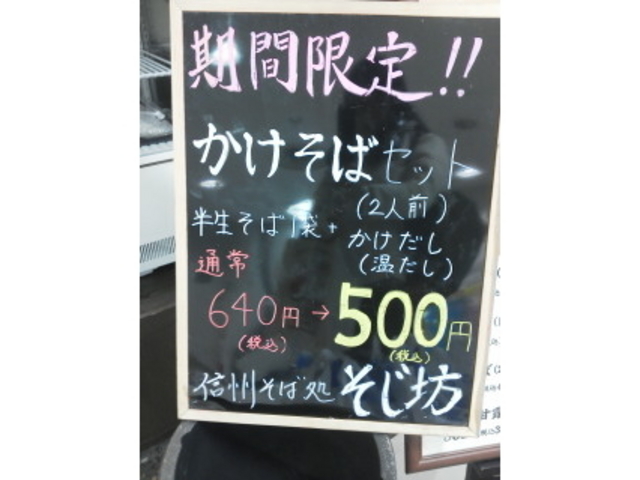 期間限定!!
かけそばセット
(2人前)
半生そば1袋+かけだし
(温だし)
通常
640円→500円
(税込) (税込)
信州そば処 そじ坊
甘露